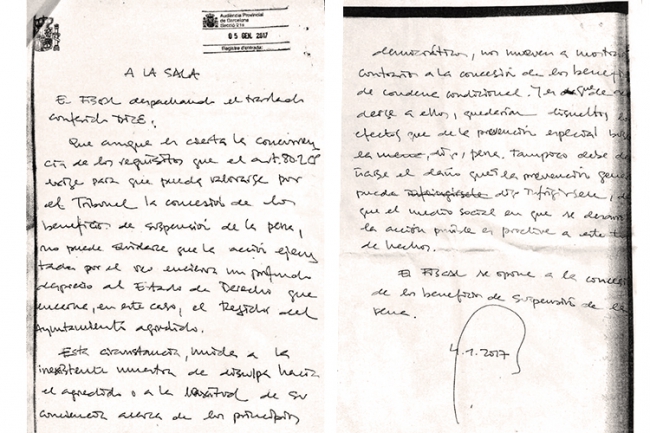 Audiència Provincial
de Barcelona
Secció 21a
05 GEN. 2017
Registre d'entrada:
A LA SALA
El Fiscal despachando el traslado
conferido DICE:
Que aunque es cierta la concurren
cia de los requisitos que el art. 80 2 CP
exige para que pueda valorarse por
el Tribunal la concesión de los
beneficios de suspensión de la pena,
no puede olvidarse que la acción ejecu
tada por el reo encierra un profundo
desprecio al Estado de Derecho que
encarna, en este caso, el Regidor del
Ayuntamiento agredido.
Esta circunstancia, unida a la
inexistente muestra de disculpa hacia
el agredido o a la laxitud de su
conciencia acerca de los principios
democráticos, nos mueven a mostrar
contrarios a la concesión de los benefic
de condena condicional. Y es que de
a ellos, quedarían disueltos los
efectos que de la prevención especial
la mera, digo, pena. Tampoco debe
el daño que la prevención gene
pueda digo infligirsele,
que el medio social en que se desarro
la acción punible es proclive a este
de hechos.
El Fiscal se opone a la conces
de los beneficios de suspensión de la
pena.
4.1.2017